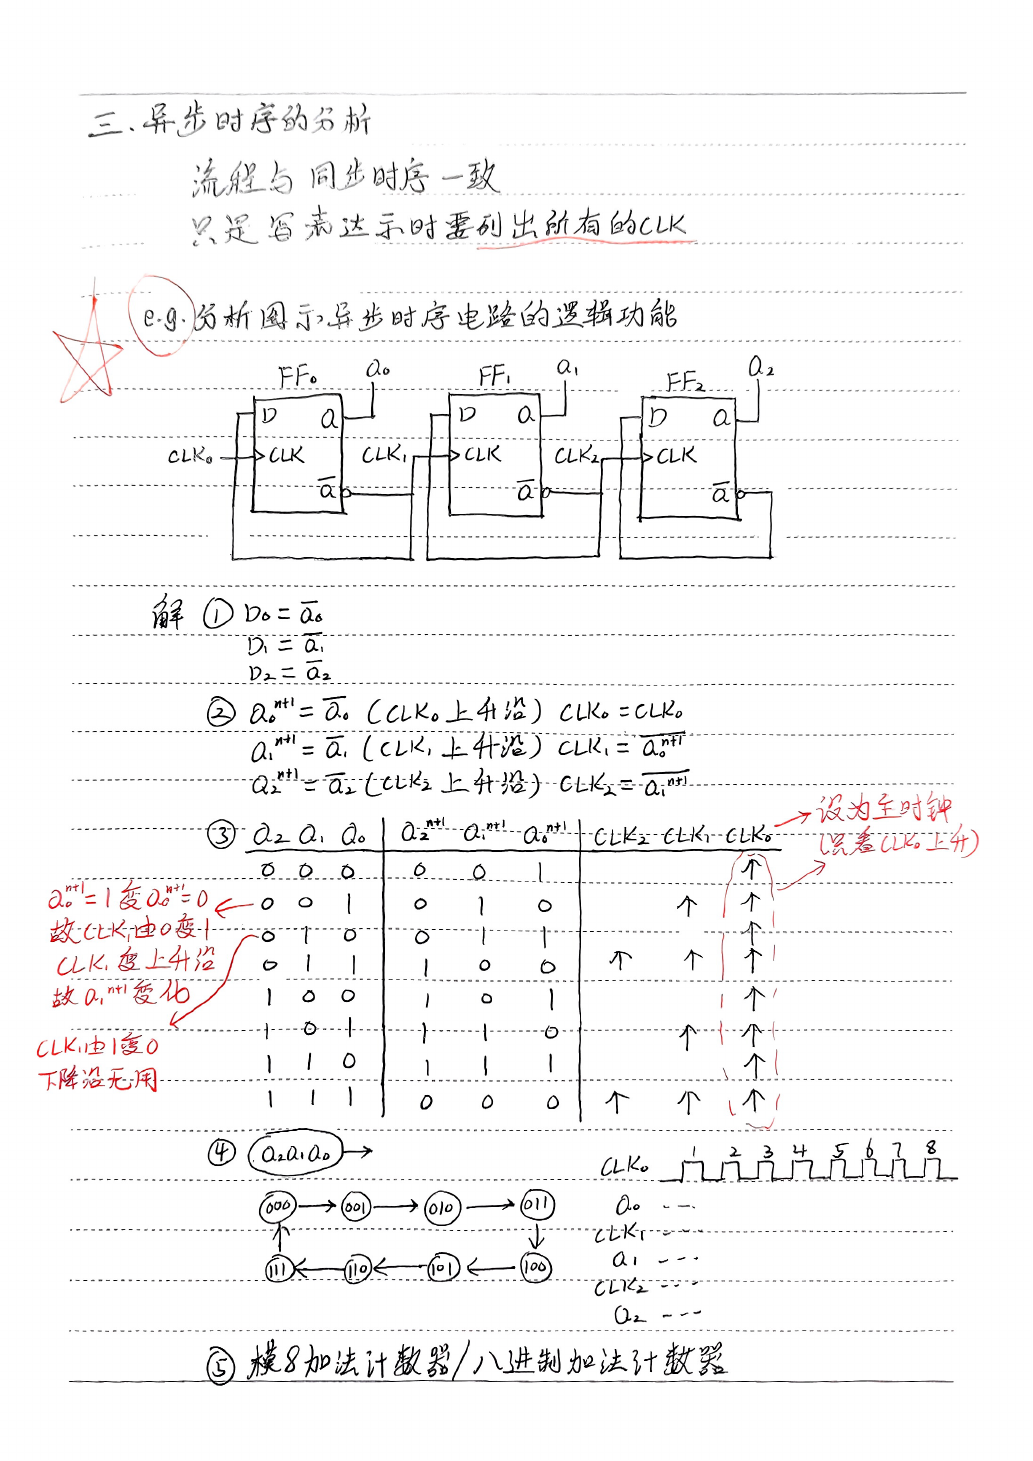 三、异步时序的分析
流程与同步时序一致
只是写表达示时要列出所有的CLK
e.g. 分析图示异步时序电路的逻辑功能
FF₀ Q₀ FF₁ Q₁ FF₂ Q₂
D Q D Q D Q
CLK₀ CLK CLK₁ CLK CLK₂ CLK
Q̅ Q̅ Q̅
解 ① D₀ = Q̅₀
D₁ = Q̅₁
D₂ = Q̅₂
② Q₀ⁿ⁺¹ = Q̅₀ (CLK₀上升沿) CLK₀ = CLK₀
Q₁ⁿ⁺¹ = Q̅₁ (CLK₁上升沿) CLK₁ = \overline{Q₀ⁿ⁺¹}
Q₂ⁿ⁺¹ = Q̅₂ (CLK₂上升沿) CLK₂ = \overline{Q₁ⁿ⁺¹}
③ Q₂ Q₁ Q₀ Q₂ⁿ⁺¹ Q₁ⁿ⁺¹ Q₀ⁿ⁺¹ CLK₂ CLK₁ CLK₀
0 0 0 0 0 1 ↑
0 0 1 0 1 0 ↑ ↑
0 1 0 0 1 1 ↑
0 1 1 1 0 0 ↑ ↑ ↑
1 0 0 1 0 1 ↑
1 0 1 1 1 0 ↑ ↑
1 1 0 1 1 1 ↑
1 1 1 0 0 0 ↑ ↑ ↑
→ 设为主时钟
(只看CLK₀上升)
Q₀ⁿ⁺¹=1变Q₀ⁿ⁺¹=0
故CLK₁由0变1
CLK₁变上升沿
故Q₁ⁿ⁺¹变化
CLK₁由1变0
下降沿无用
④ Q₂Q₁Q₀ →
000 → 001 → 010 → 011
↑ ↓
111 ← 110 ← 101 ← 100
1 2 3 4 5 6 7 8
CLK₀
Q₀ ---
CLK₁ ---
Q₁ ---
CLK₂ ---
Q₂ ---
⑤ 模8加法计数器/八进制加法计数器